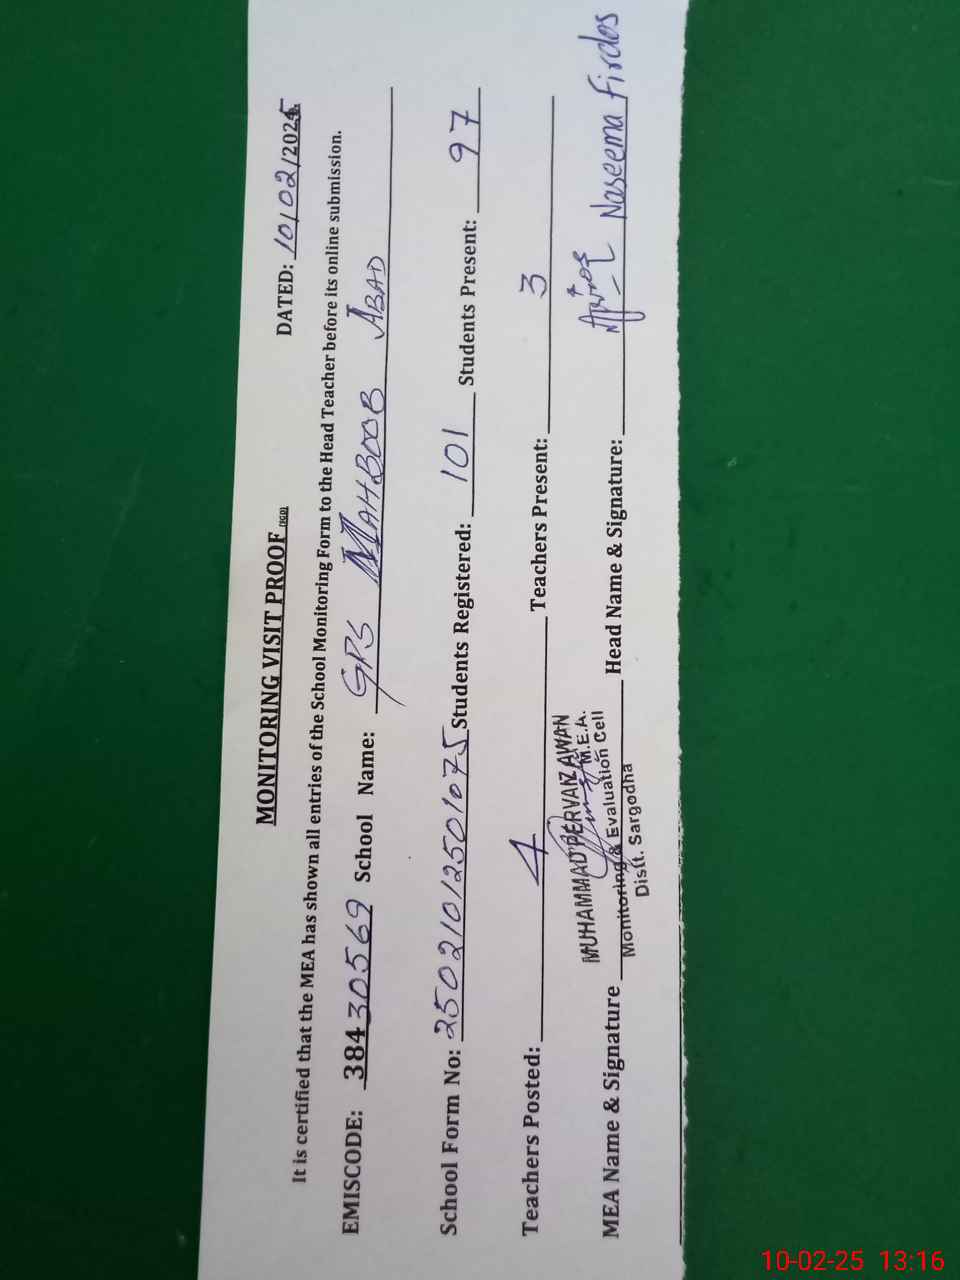 MONITORING VISIT PROOF
DATED: 10/02/2025
It is certified that the MEA has shown all entries of the School Monitoring Form to the Head Teacher before its online submission.
EMISCODE: 38430569 School Name: GPS MAHBOOB ABAD
School Form No: 25021012501075 Students Registered: 101 Students Present: 97
Teachers Posted: 4 Teachers Present: 3
MUHAMMAD PERVAIZ AWAN
M.E.A.
MEA Name & Signature Monitoring & Evaluation Cell Head Name & Signature: Naseema Firdos
Distt. Sargodha
10-02-25 13:16